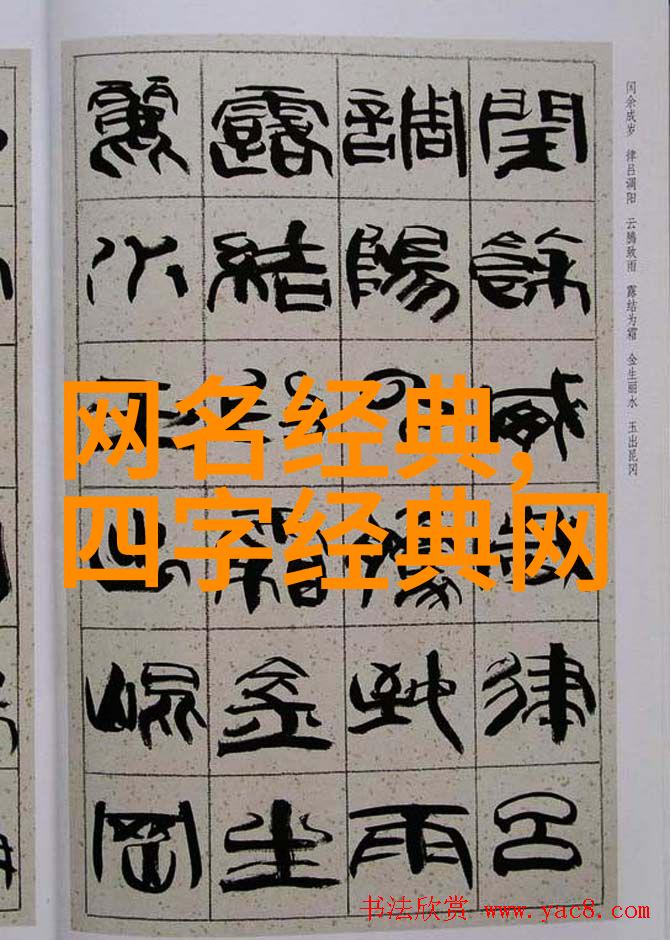 闰余成岁 律吕调阳 云腾致雨 露结为霜 金生丽水 玉出昆冈
閏餘成歲律呂
調陽云騰致雨
露結為霜金生
麗水玉出崐岡
网名经典,
四字经典网
书法欣赏 www.yac8.com